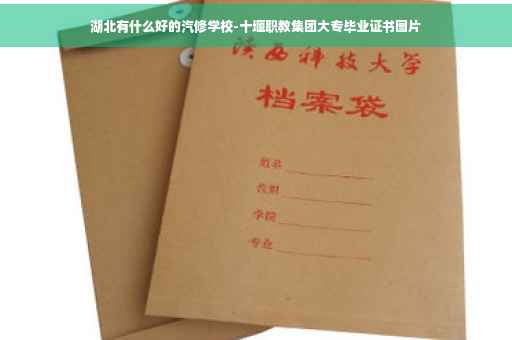 湖北有什么好的汽修学校-十堰职教集团大专毕业证书图片
陕西科技大学
档案袋
姓名
教职
学院
专业